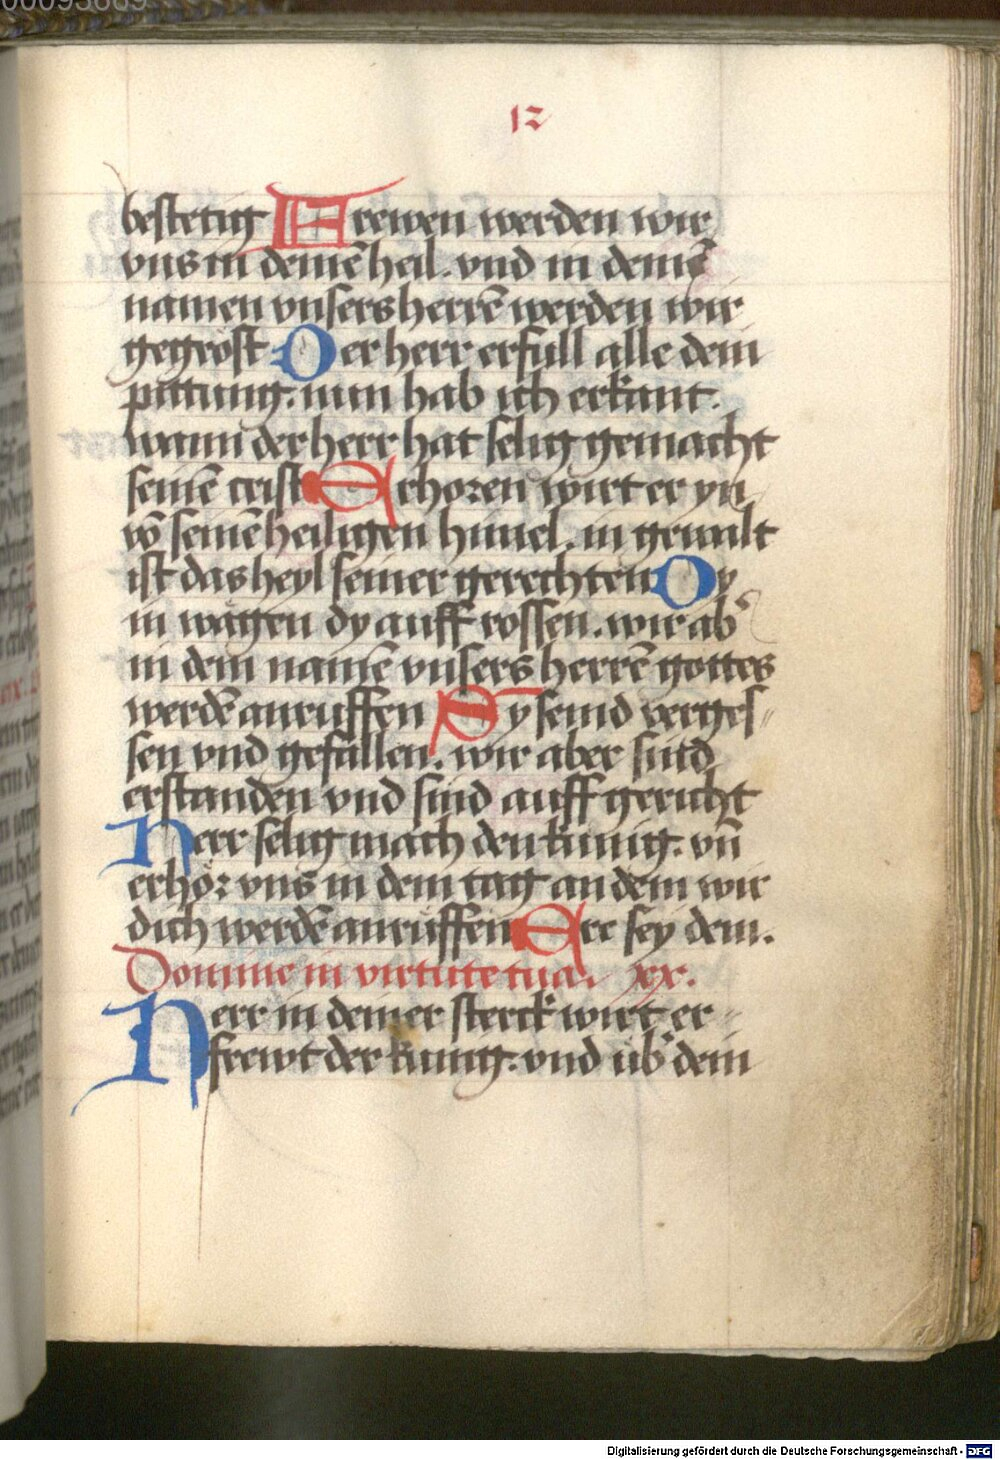 00093669
12
bestetig Frewen werden wir
vns in deinē heil. vnd in deinē
namen vnsers herrē werden wir
gegröst Der herr erfull alle dein
pittung. nun hab ich erkant.
wann der herr hat selig gemacht
seinē crist Erhoren wirt er yn
vō seinē heiligen himel. in gewalt
ist das heyl seiner gerechten Dy
in wägen dy auff rossen. wir ab᷑
in dem namē vnsers herrē gottes
werdē anruffen Sy seind verges⸗
sen vnd gefallen. wir aber sind
erstanden vnd sind auff gericht
Herr selig mach den kunig. vn̄
erhör vns in dem tag an dem wir
dich werdē anrüffen Ere sey dem.
Domine in virtute tua. xx.
Herr in deiner sterck wirt er⸗
frewt der kunig. vnd üb᷑ dein
Digitalisierung gefördert durch die Deutsche Forschungsgemeinschaft - DFG